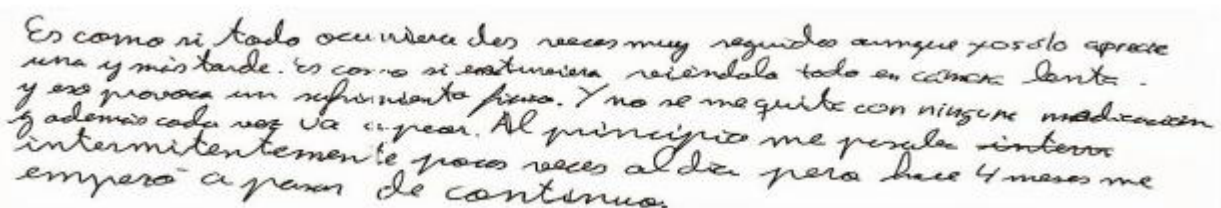 Es como si todo ocurriera dos veces muy seguidas aunque yo sólo aprecie
una y más tarde. Es como si estuviera viéndolo todo en cámara lenta.
y eso provoca un sufrimiento físico. Y no se me quita con ninguna medicación
y además cada vez va a peor. Al principio me pasaba interm
intermitentemente pocas veces al día pero hace 4 meses me
empezó a pasar de continuo.